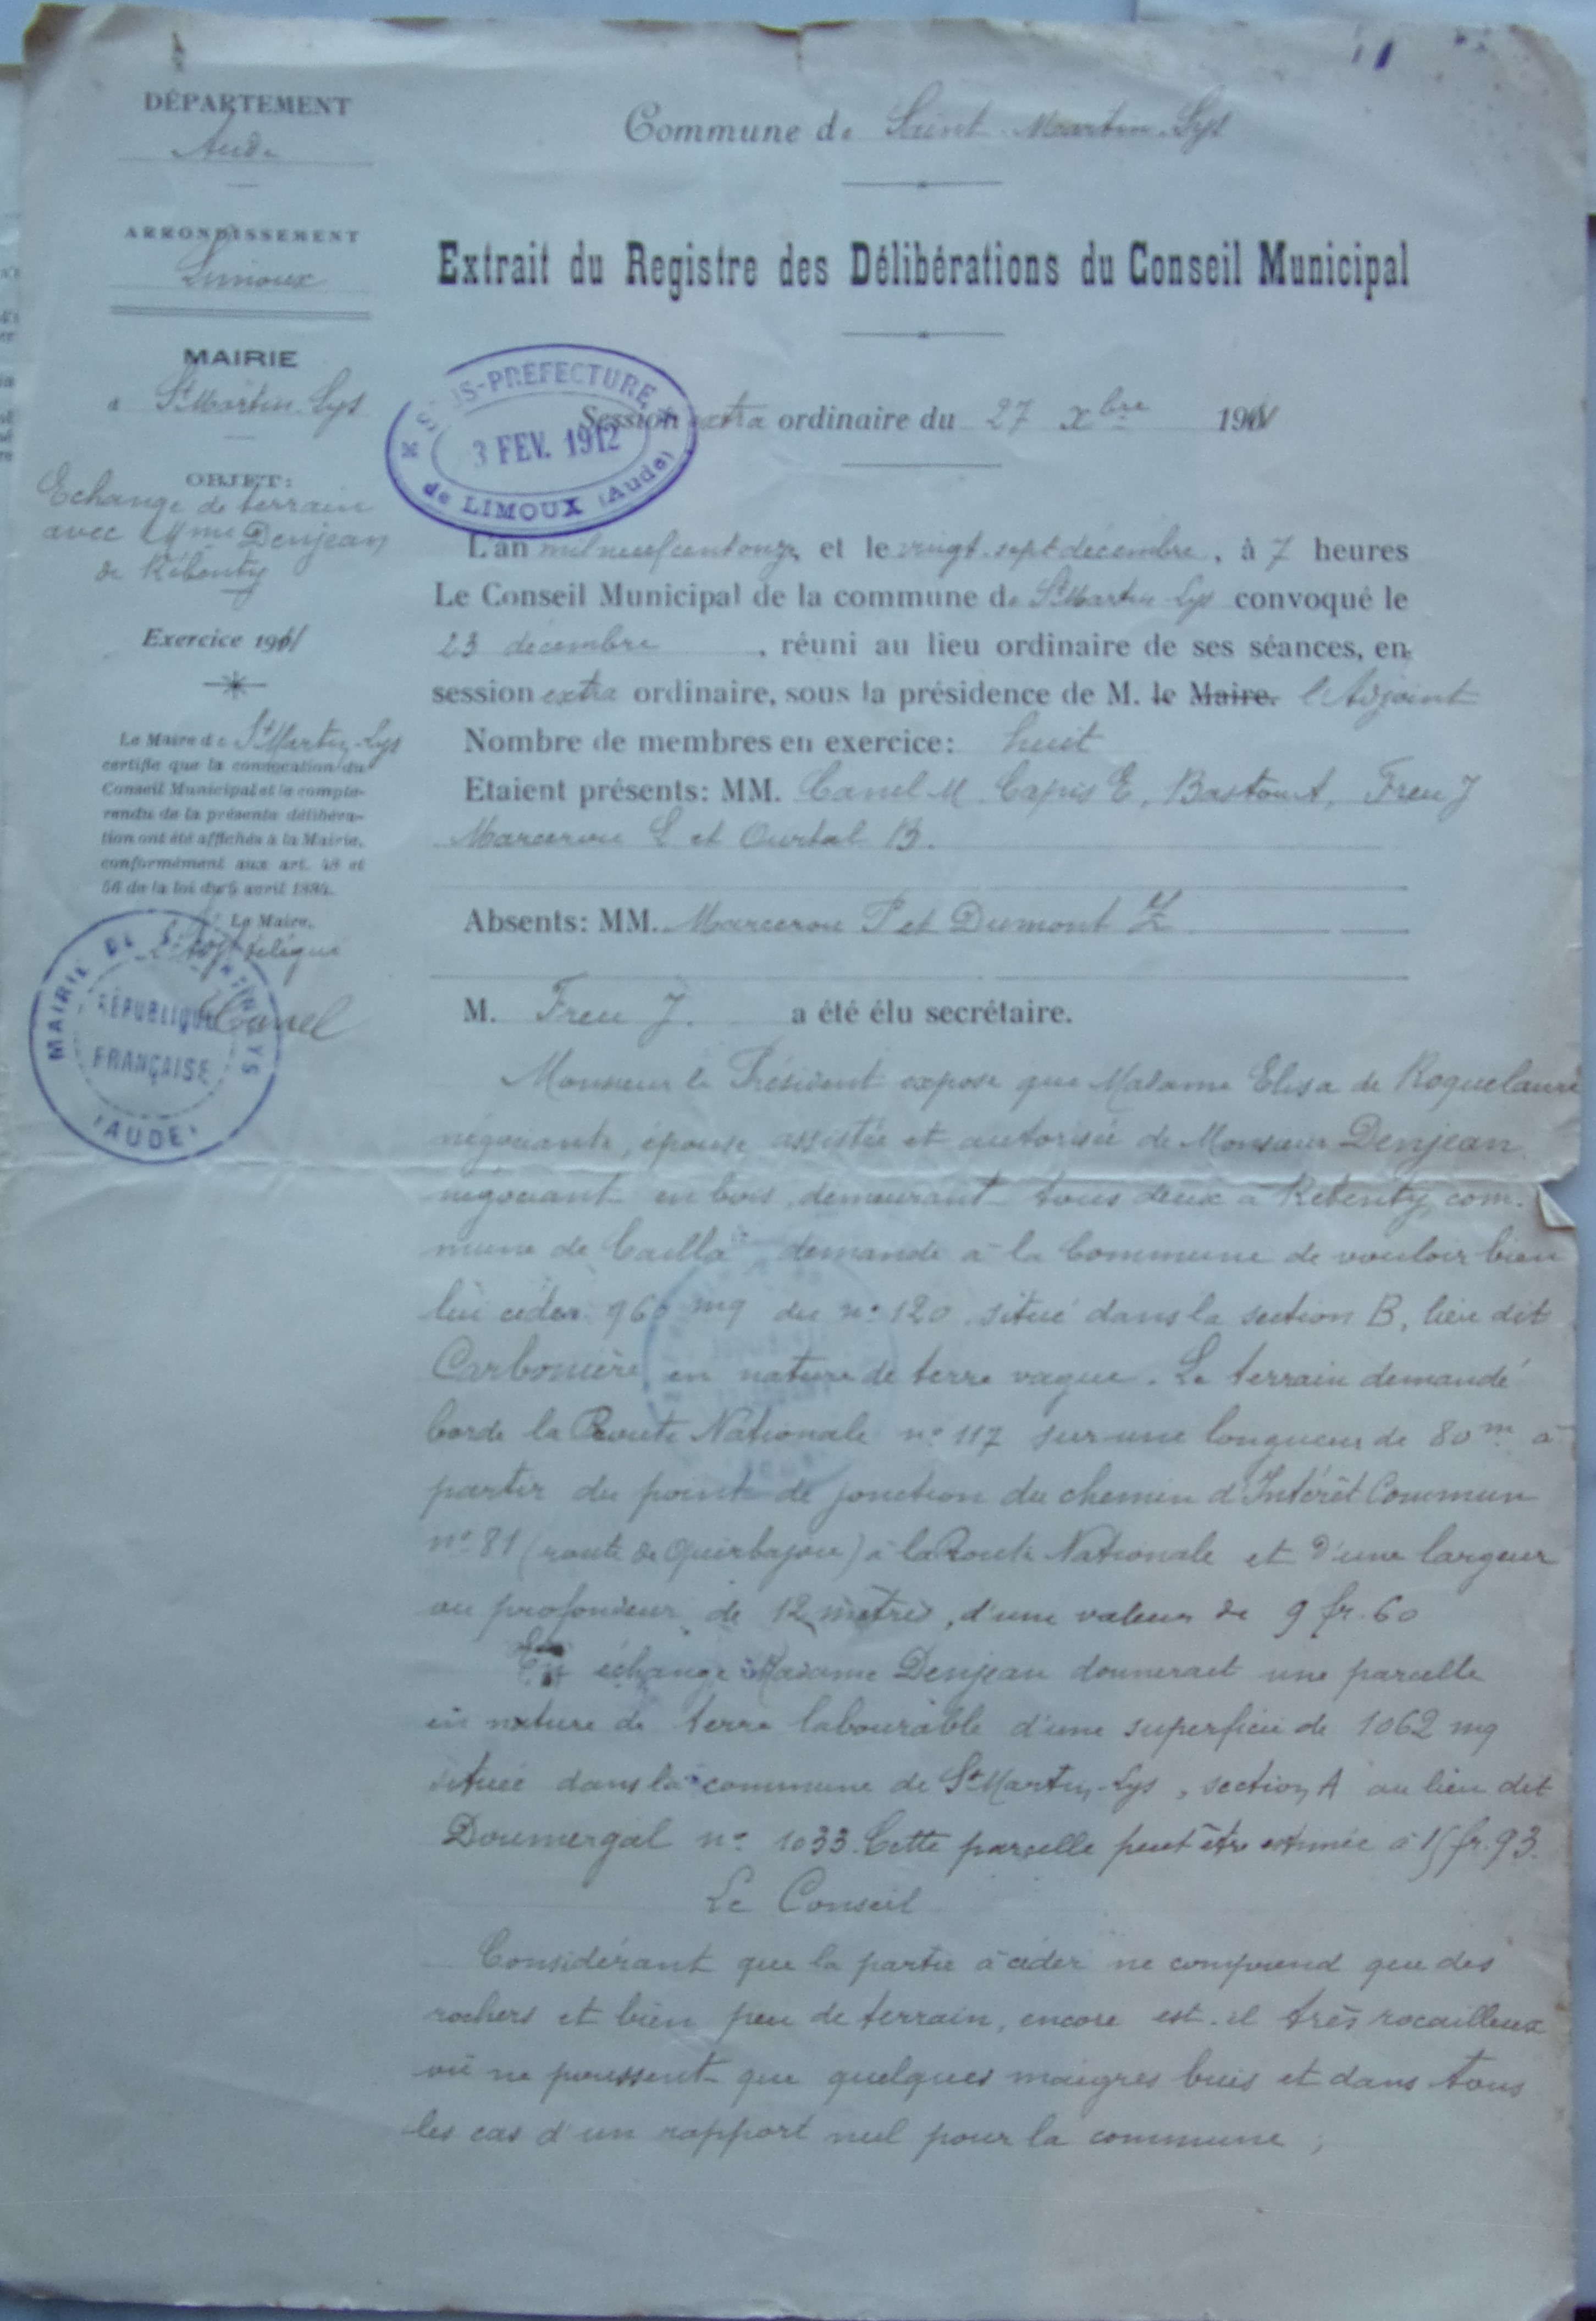 DÉPARTEMENT
Aude
ARRONDISSEMENT
Limoux
MAIRIE
à St Martin-Lys
OBJET:
Echange de terrain
avec Mme Denjean
de Rébenty
Exercice 1911
Le Maire de St Martin-Lys
certifie que la convocation du
Conseil Municipal et le compte-
rendu de la présente délibéra-
tion ont été affichés à la Mairie,
conformément aux art. 48 et
56 de la loi du 5 avril 1884.
Le Maire,
délégué
Canel
MAIRIE DE St MARTIN LYS
RÉPUBLIQUE
FRANÇAISE
(AUDE)
Commune de Saint-Martin-Lys
Extrait du Registre des Délibérations du Conseil Municipal
SOUS-PRÉFECTURE
3 FEV. 1912
de LIMOUX (Aude)
Session extra ordinaire du 27 xbre 1911
L'an mil neuf cent onze, et le vingt-sept décembre, à 7 heures
Le Conseil Municipal de la commune de St Martin-Lys convoqué le
23 décembre, réuni au lieu ordinaire de ses séances, en
session extra ordinaire, sous la présidence de M. le Maire. l'Adjoint
Nombre de membres en exercice: huit
Etaient présents: MM. Canel M. Capis E, Bastou A, Freu J
Marcerou L et Ourtal B.
Absents: MM. Marcerou P et Dumont
M. Freu J. a été élu secrétaire.
Monsieur le Président expose que Madame Elisa de Roquelaure
négociante, épouse assistée et autorisée de Monsieur Denjean
négociant en bois, demeurant tous deux à Rébenty, com-
mune de Cailla demande à la Commune de vouloir bien
lui céder 960 mq du n° 120 situé dans la section B, lieu dit
Carbonière en nature de terre vague. Le terrain demandé
borde la Route Nationale n° 117 sur une longueur de 80m à
partir du point de jonction du chemin d'Intérêt Commun
n° 81 (route de Quirbajou) à la Route Nationale et d'une largeur
ou profondeur de 12 mètres, d'une valeur de 9 fr. 60
En échange Madame Denjean donnerait une parcelle
en nature de terre labourable d'une superficie de 1062 mq
située dans la commune de St Martin-Lys, section A au lieu dit
Doumergal n° 1033. Cette parcelle peut être estimée à 15 fr. 93.
Le Conseil
Considérant que la partie à céder ne comprend que des
rochers et bien peu de terrain, encore est-il très rocailleux
où ne poussent que quelques maigres buis et dans tous
les cas d'un rapport nul pour la commune ;